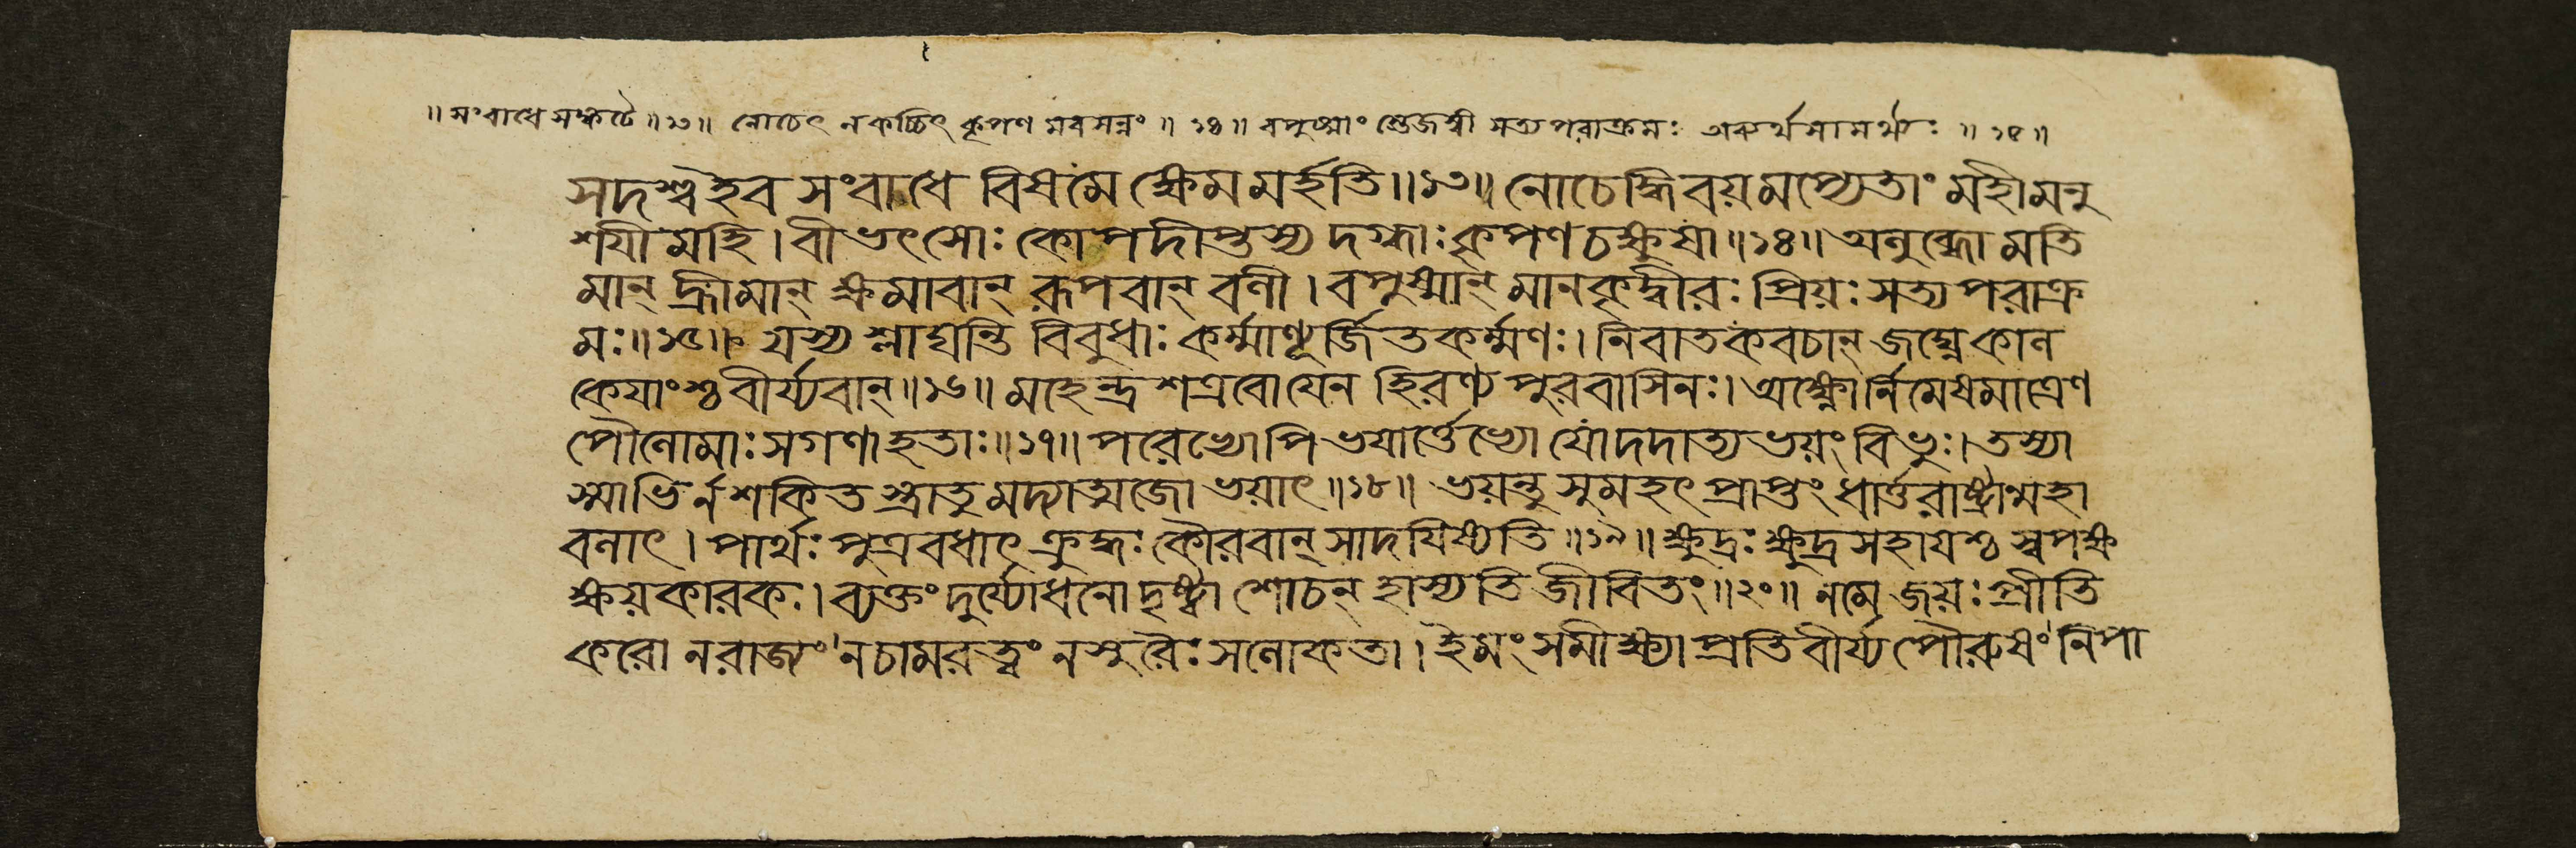 ॥ সংবাধে সঙ্কটে ॥ ১৩ ॥ নোচেৎ নকচ্চিৎ কৃপণ মবসন্নং ॥ ১৪ ॥ বপুষ্মাং স্তেজস্বী সত্যপরাক্রমঃ অব্যর্থসামর্থ্যঃ ॥ ১৫ ॥
সদশ্চইব সংবাধে বিষমে ক্ষেমমর্হতি॥১৩॥ নোচেদ্ধিবয়মপ্যেতাং মহীমনু
শযীমহি। বীভৎসোঃ কোপদীপ্তস্য দগ্ধাঃ কৃপণচক্ষুষা॥১৪॥ অলুব্ধো মতি
মান্ হ্রীমান্ ক্ষমাবান্ রূপবান্ বলী। বপুষ্মান্ মানকৃদ্বীরঃ প্রিয়ঃ সত্যপরাক্র
মঃ॥১৫॥ যস্য শ্লাঘন্তি বিবুধাঃ কর্ম্মাণ্যূর্জিতকর্ম্মণঃ। নিবাতকবচান্ জঘ্নে কাল
কেযাংশ্চ বীর্য্যবান্॥১৬॥ মহেন্দ্রশত্রবো যেন হিরণ্যপুরবাসিনঃ। অক্ষ্ণোর্নিমেষমাত্রেণ
পৌলোমাঃ সগণা হতাঃ॥১৭॥ পরেভ্যোপি ভযার্ত্তেভ্যো যো দদাত্যভয়ং বিভুঃ। তস্যা
স্মাভির্ন শকিতস্ত্রাতুমদ্যাত্মজো ভয়াৎ॥১৮॥ ভয়ন্তু সুমহৎ প্রাপ্তং ধার্ত্তরাষ্ট্রান্মহা
বলাৎ। পার্থঃ পুত্রবধাৎ ক্রুদ্ধঃ কৌরবান্ সাদযিষ্যতি॥১৯॥ ক্ষুদ্রঃ ক্ষুদ্রসহাযশ্চ স্বপক্ষ
ক্ষয়কারকঃ। ব্যক্তং দুর্য্যোধনো দৃষ্ট্বা শোচন্ হাস্যতি জীবিতং॥২০॥ নমে জয়ঃ প্রীতি
করো ন রাজ্যং নচামরত্বং ন সুরৈঃ সলোকতা। ইমং সমীক্ষ্যাপ্রতিবীর্য্যপৌরুষং নিপা